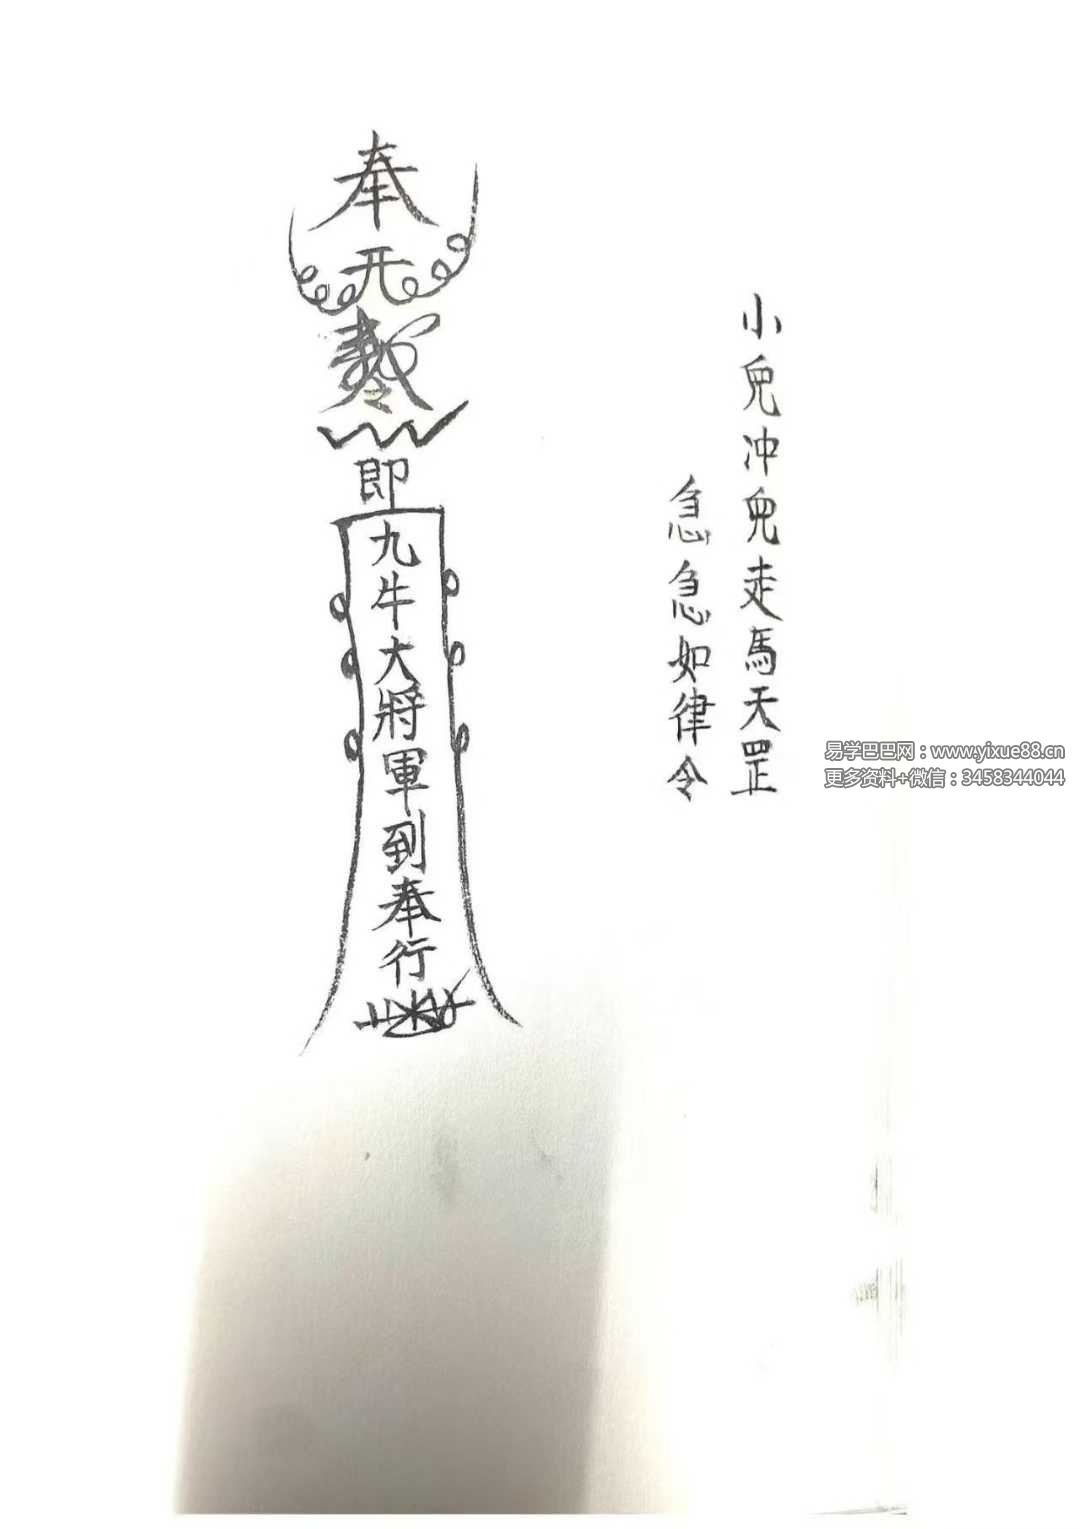 小兒冲兒走馬天罡
急急如律令
奉
令
即
九牛大將軍到奉行
易学巴巴网：www.yixue88.cn
更多资料+微信：3458344044